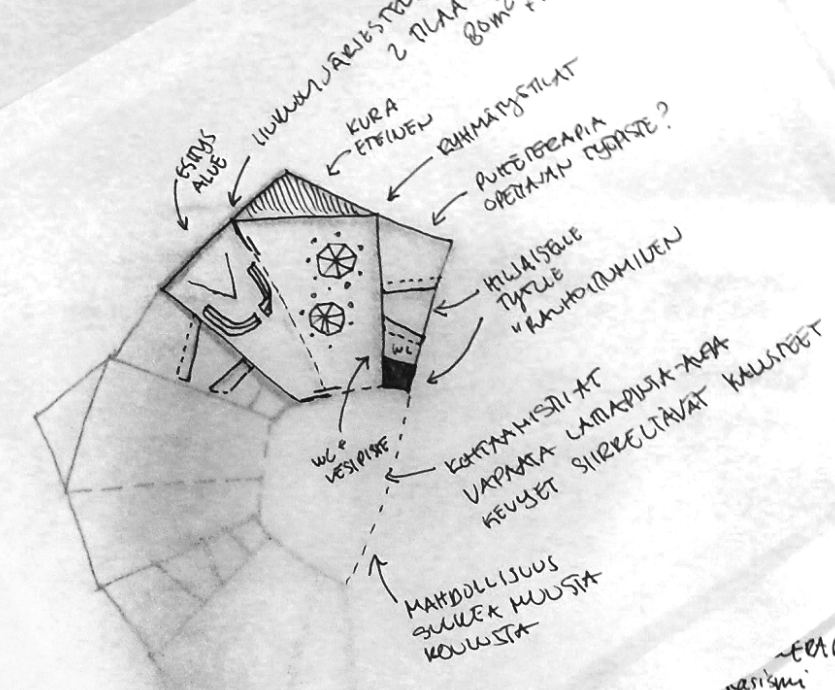 LIUKUOVIJÄRJESTEL
2 TILAA
80m²
ESITYS
ALUE
KURA
ETEINEN
RYHMÄTYÖTILAT
PUHETERAPIA
OPETTAJAN TYÖPISTE?
HILJAISELLE
TYÖLLE
"RAUHOITTUMINEN
WC
WC+
VESIPISTE
KOHTAAMISTILAT
VAPAATA LATTIAPINTA-ALAA
KEVYET SIIRRELTÄVÄT KALUSTEET
MAHDOLLISUUS
SULKEA MUUSTA
KOULUSTA